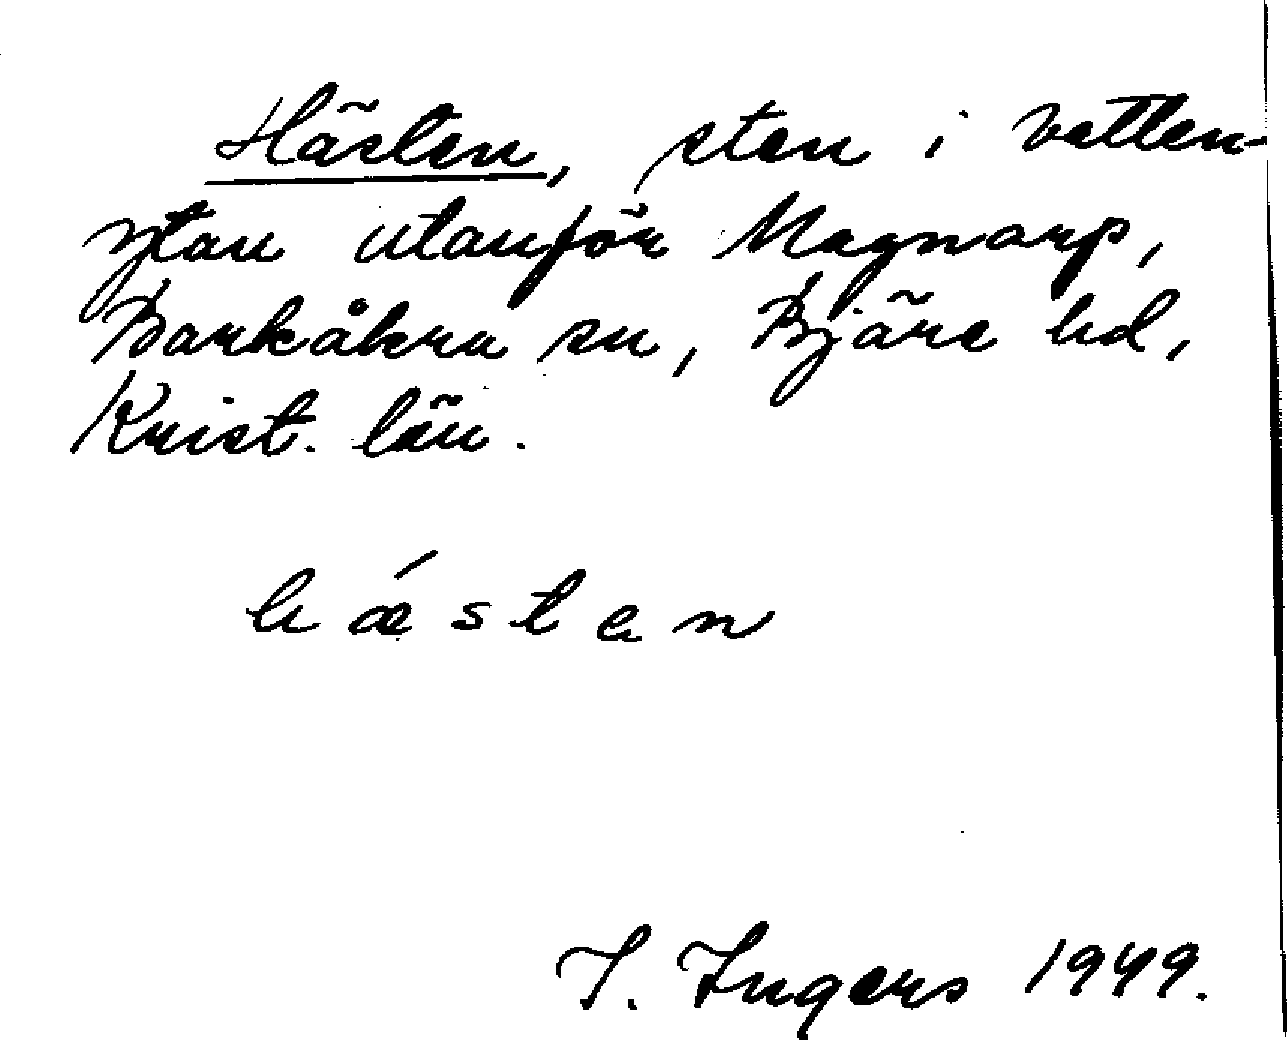 Hästen, sten i vatten-
ytan utanför Magnarp,
Barkåkra sn, Bjäre hd,
Krist. län.
hǽsten
I. Ingers 1949.